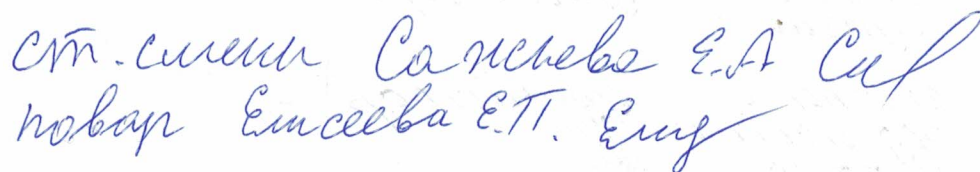 ст. смены Сажнева Е.А
повар Елисеева Е.П.